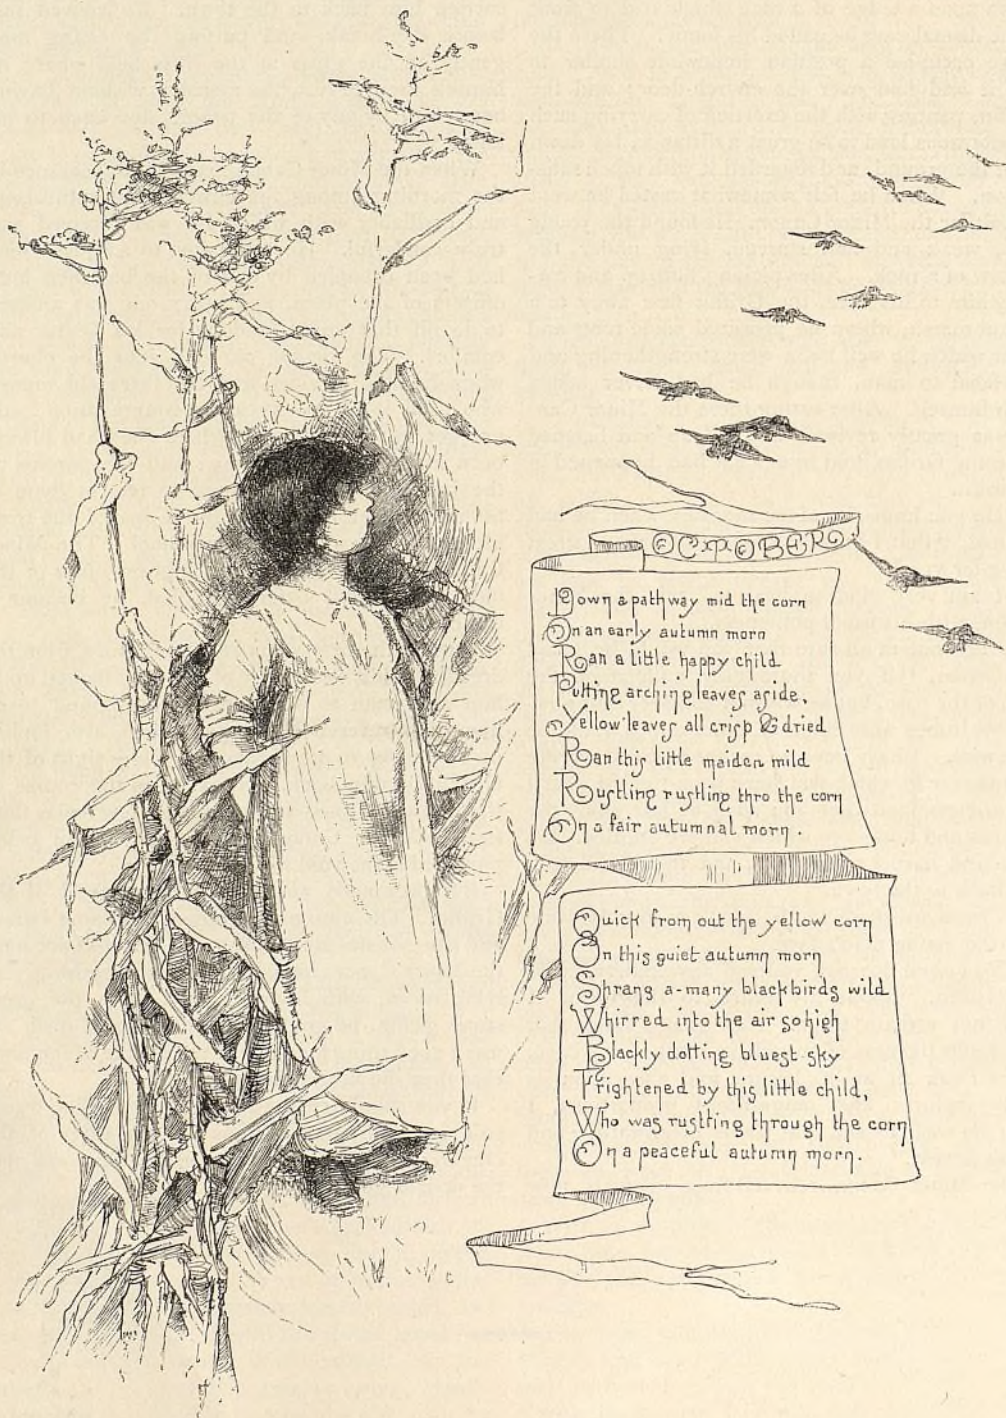 OCTOBER
Down a pathway mid the corn
On an early autumn morn
Ran a little happy child
Putting arching leaves aside,
Yellow leaves all crisp & dried
Ran this little maiden mild
Rustling rustling thro the corn
On a fair autumnal morn.
Quick from out the yellow corn
On this quiet autumn morn
Sprang a-many blackbirds wild
Whirred into the air so high
Blackly dotting bluest sky
Frightened by this little child,
Who was rustling through the corn
On a peaceful autumn morn.